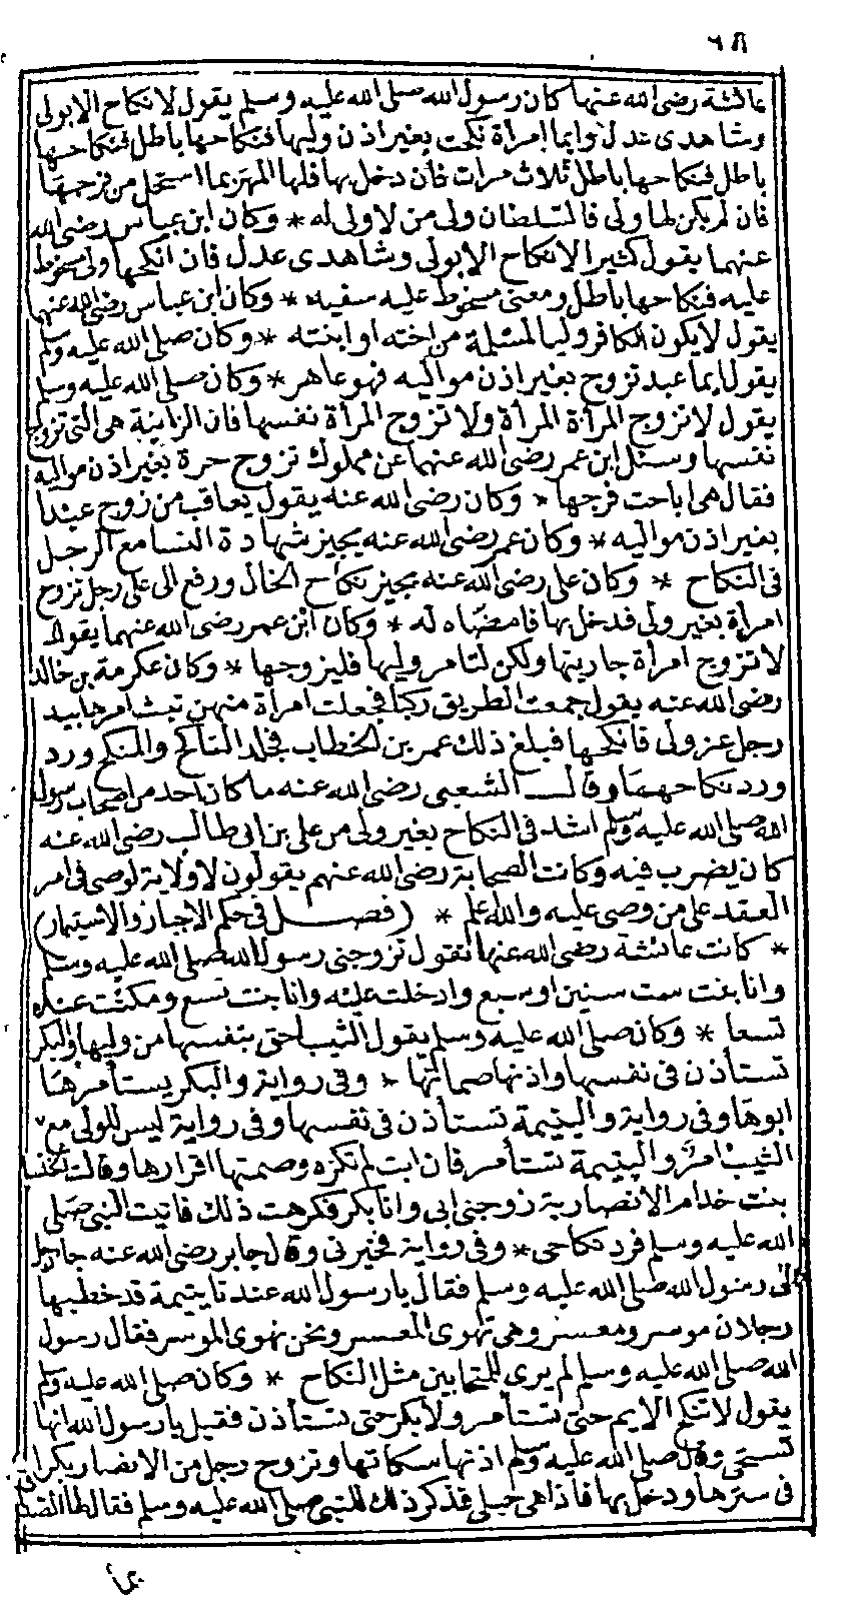 ٦٨
عائشة رضى الله عنها كان رسول الله صلى الله عليه وسلم يقول لا نكاح الا بولى
وشاهدى عدل وايما امرأة نكحت بغير اذن وليها فنكاحها باطل فنكاحها
باطل فنكاحها باطل ثلاث مرات فان دخل بها فلها المهر بما استحل من فرجها
فان لم يكن لها ولى فالسلطان ولى من لا ولى له * وكان ابن عباس رضى الله
عنهما يقول كثيرا لا نكاح الا بولى وشاهدى عدل فان انكحها ولى مسخوط
عليه فنكاحها باطل ومعنى مسخوط عليه سفيه * وكان ابن عباس رضى الله عنهما
يقول لا يكون الكافر وليا لمسلمة من اخته او ابنته * وكان صلى الله عليه وسلم
يقول ايما عبد تزوج بغير اذن مواليه فهو عاهر * وكان صلى الله عليه وسلم
يقول لا تزوج المرأة المرأة ولا تزوج المرأة نفسها فان الزانية هى التى تزوج
نفسها وسئل ابن عمر رضى الله عنهما عن مملوك تزوج حرة بغير اذن مواليه
فقال هى اباحت فرجها * وكان رضى الله عنه يقول يعاقب من زوج عبدا
بغير اذن مواليه * وكان عمر رضى الله عنه يجيز شهادة النسا مع الرجل
فى النكاح * وكان على رضى الله عنه يجيز نكاح الخال ورفع الى على رجل تزوج
امرأة بغير ولى فدخل بها فامضاه له * وكان ابن عمر رضى الله عنهما يقول
لا تزوج امرأة جاريتها ولكن لتامر وليها فليزوجها * وكان عكرمة بن خالد
رضى الله عنه يقول جمعت الطريق ركبا فجعلت امرأة منهن ثيب امرها بيد
رجل غير ولى فانكحها فبلغ ذلك عمر بن الخطاب فجلد الناكح والمنكح ورد
ورد نكاحهما وقال الشعبى رضى الله عنه ما كان احد من اصحاب رسول
الله صلى الله عليه وسلم اشد فى النكاح بغير ولى من على بن ابى طالب رضى الله عنه
كان يضرب فيه وكانت الصحابة رضى الله عنهم يقولون لا ولاية لوصى فى امر
العقد على من وصى عليه والله اعلم * (فصل فى حكم الاجبار والاستيمار)
* كانت عائشة رضى الله عنها تقول تزوجنى رسول الله صلى الله عليه وسلم
وانا بنت ست سنين او سبع وادخلت عليه وانا بنت تسع ومكثت عنده
تسعا * وكان صلى الله عليه وسلم يقول الثيب احق بنفسها من وليها والبكر
تستأذن فى نفسها واذنها صماتها * وفى رواية والبكر يستأمرها
ابوها وفى رواية واليتيمة تستأذن فى نفسها وفى رواية ليس للولى مع
الثيب امر واليتيمة تستأمر فان ابت لم تكره وصمتها اقرارها وقالت خنسا
بنت خدام الانصارية زوجنى ابى وانا بكر فكرهت ذلك فاتيت النبى صلى
الله عليه وسلم فرد نكاحى * وفى رواية فخيرنى وقال جابر رضى الله عنه جا رجل
الى رسول الله صلى الله عليه وسلم فقال يا رسول الله عندنا يتيمة قد خطبها
رجلان موسر ومعسر وهى تهوى المعسر ونحن نهوى الموسر فقال رسول
الله صلى الله عليه وسلم لم يرى للمتحابين مثل النكاح * وكان صلى الله عليه وسلم
يقول لا تنكح الايم حتى تستأمر ولا بكر حتى تستأذن فقيل يا رسول الله انها
تستحى وقال صلى الله عليه وسلم اذنها سكاتها وتزوج رجل من الانصار بكرا
فى سترها ودخل بها فاذا هى حبلى فذكر ذلك للنبى صلى الله عليه وسلم فقال لها